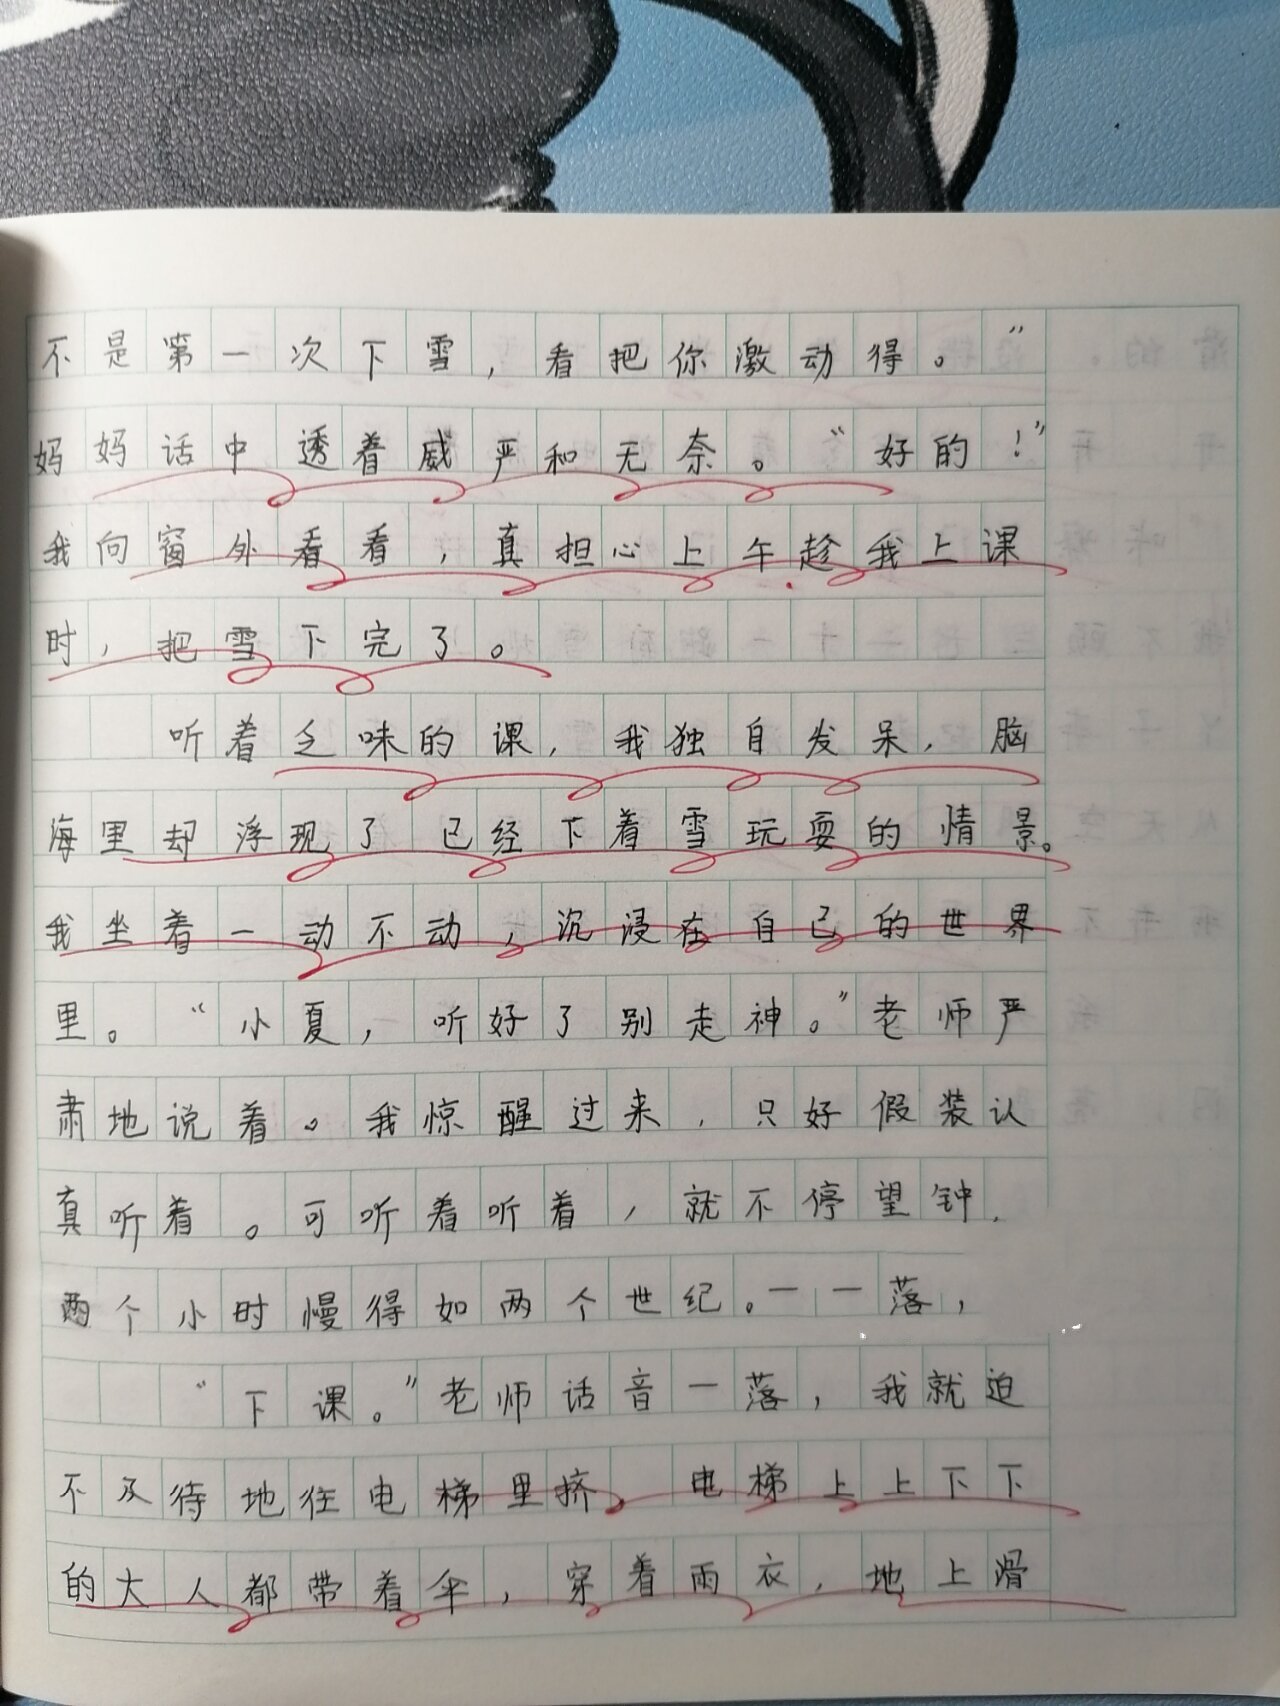 不是第一次下雪，看把你激动得。”
妈妈话中透着威严和无奈。“好的！”
我向窗外看看，真担心上午趁我上课
时，把雪下完了。
听着乏味的课，我独自发呆，脑
海里却浮现了已经下着雪玩耍的情景。
我坐着一动不动，沉浸在自己的世界
里。“小夏，听好了别走神。”老师严
肃地说着。我惊醒过来，只好假装认
真听着。可听着听着，就不停望钟，
两个小时慢得如两个世纪。一一落，
“下课。”老师话音一落，我就迫
不及待地往电梯里挤。电梯上上下下
的大人都带着伞，穿着雨衣，地上滑